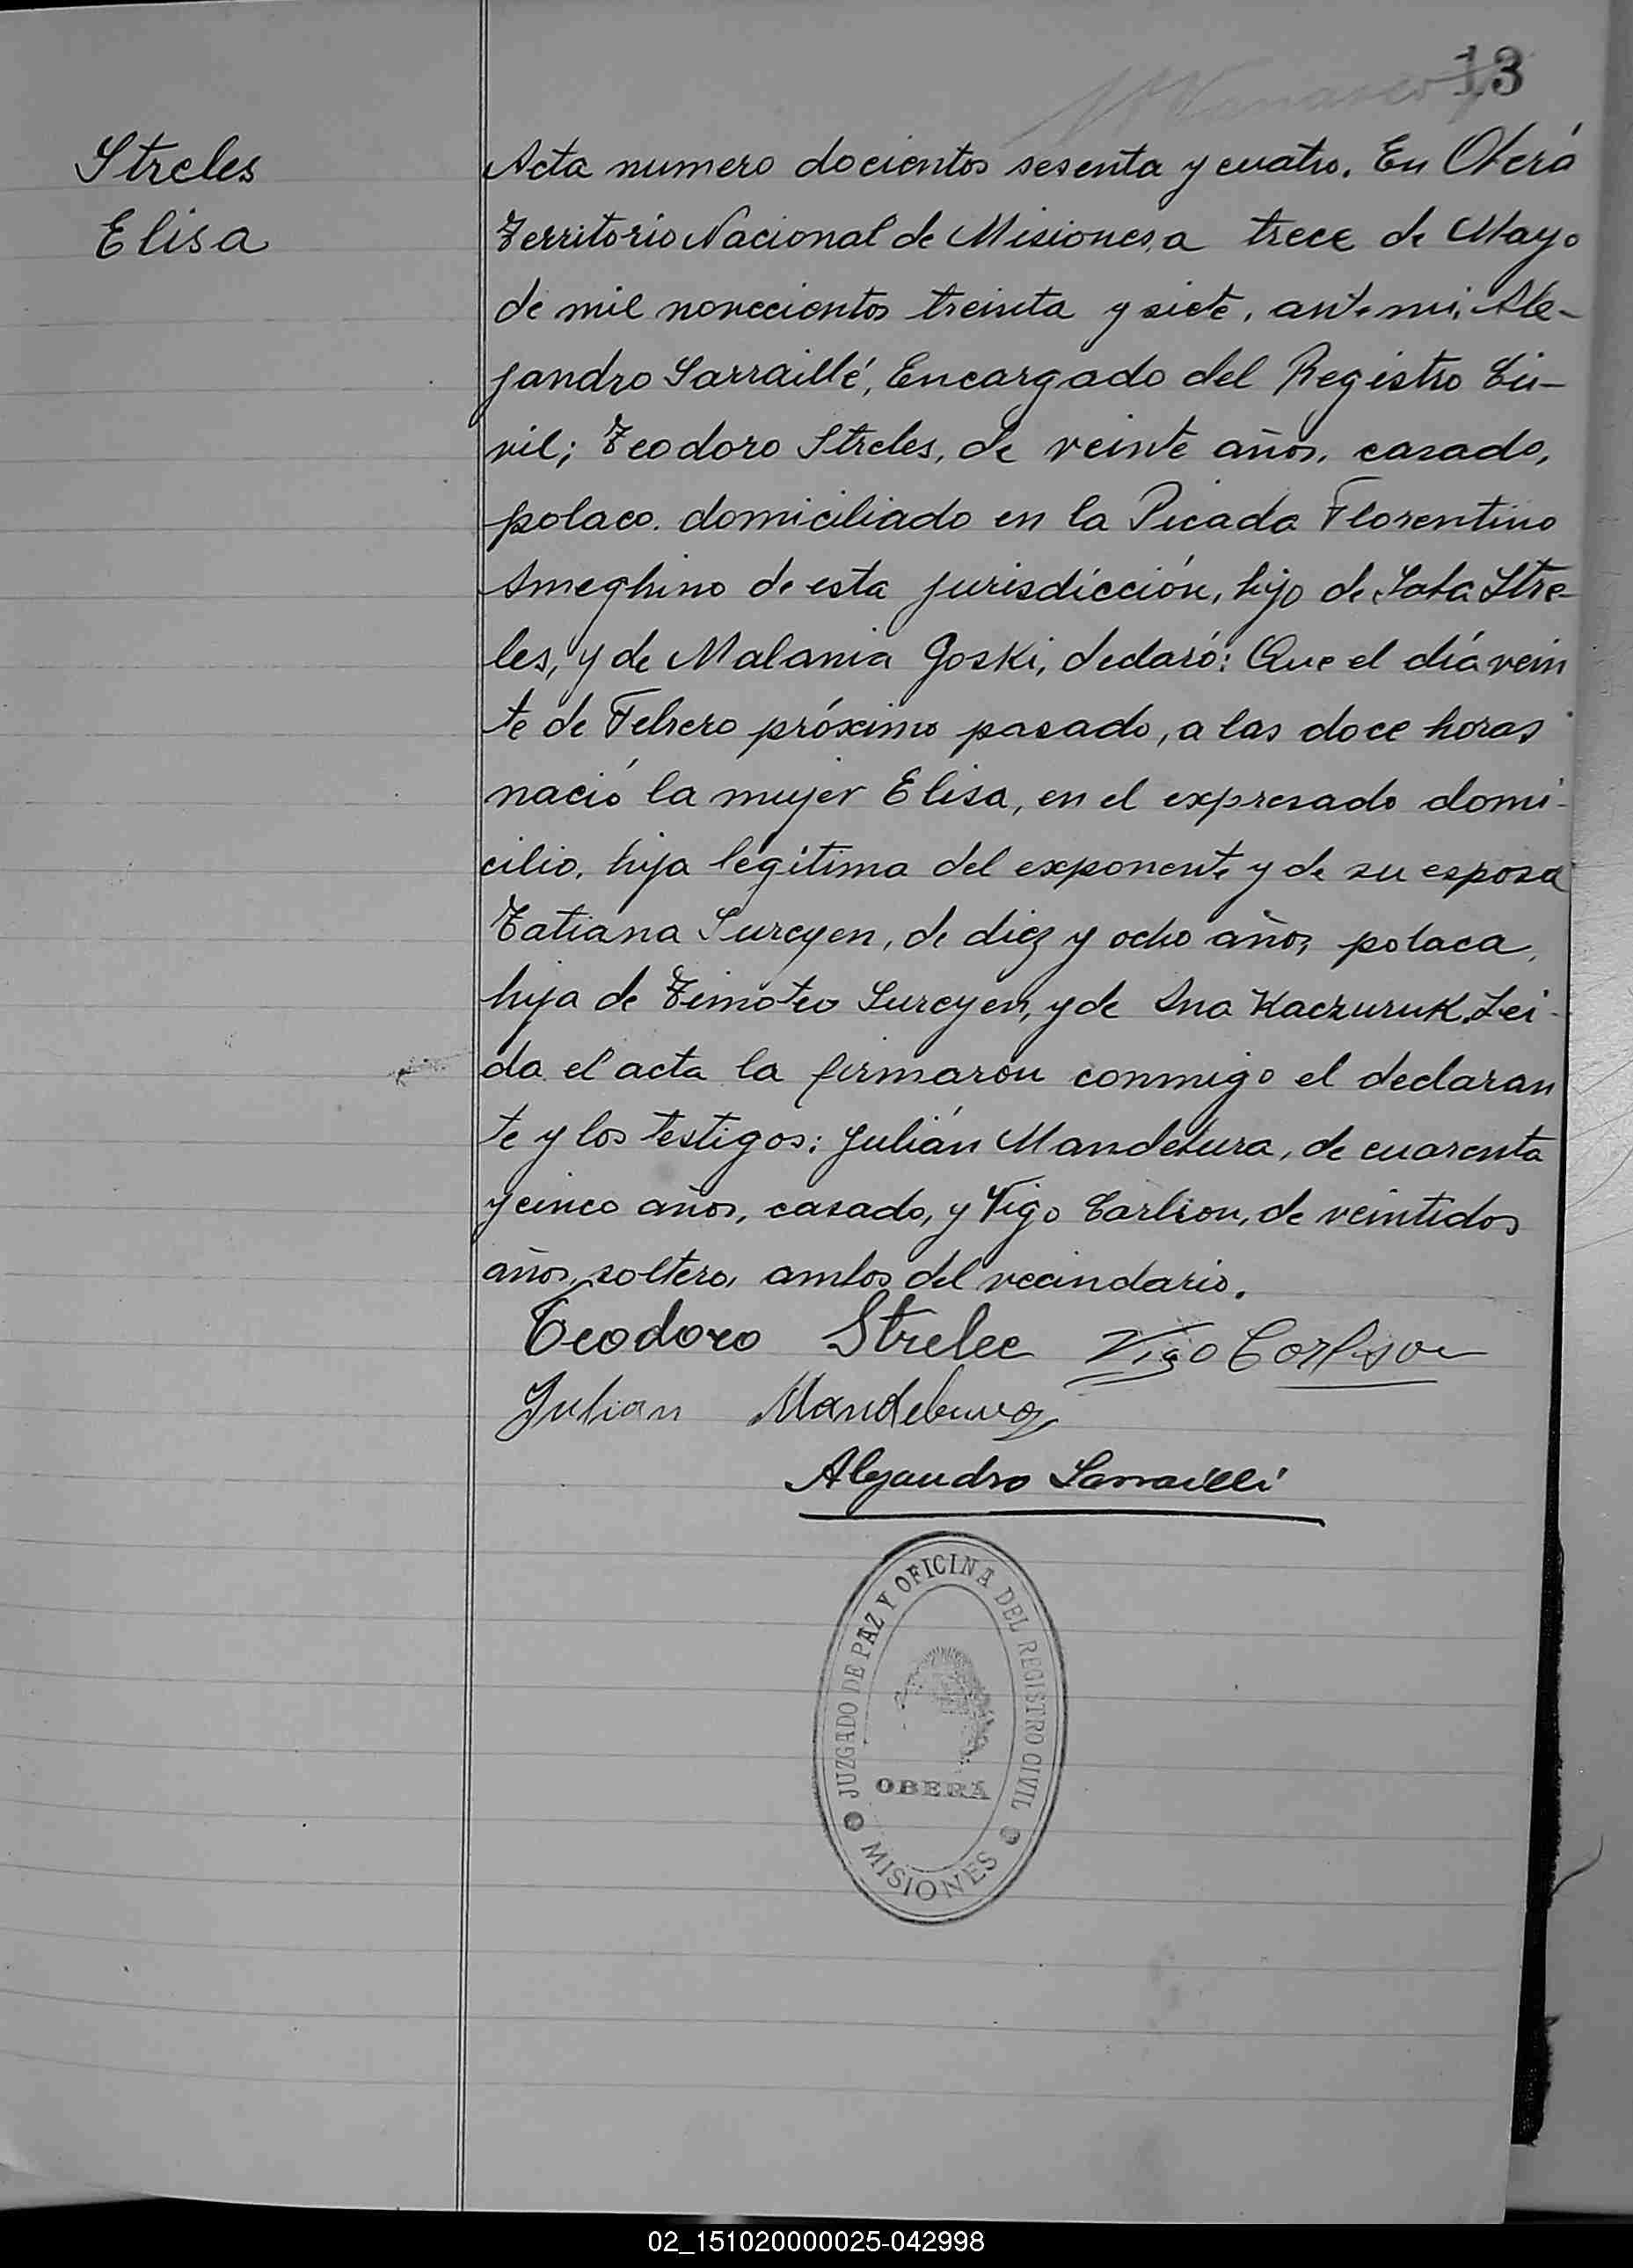 13
Streles
Elisa
Acta numero docientos sesenta y cuatro. En Oberá
Territorio Nacional de Misiones, a trece de Mayo
de mil novecientos treinta y siete, ante mi, Ale-
jandro Sarraillé, Encargado del Registro Ci-
vil; Teodoro Streles, de veinte años, casado,
polaco. domiciliado en la Picada Florentino
Ameghino de esta jurisdicción, hijo de Saba Stre-
les, y de Malania Goski, declaró: Que el día vein
te de Febrero próximo pasado, a las doce horas
nació la mujer Elisa, en el expresado domi-
cilio, hija legítima del exponente y de su esposa
Tatiana Surcyen, de diez y ocho años, polaca,
hija de Timoteo Surcyen, y de Ana Kaczuruk. Lei-
da el acta la firmaron conmigo el declaran
te y los testigos: Julián Mandebura, de cuarenta
y cinco años, casado, y Vigo Carlson, de veintidos
años, soltero, ambos del vecindario.
Teodoro Strelec Vigo Carlson
Julian Mandebura
Alejandro Sarraillé
JUZGADO DE PAZ Y OFICINA DEL REGISTRO CIVIL
OBERÁ
MISIONES
02_151020000025-042998